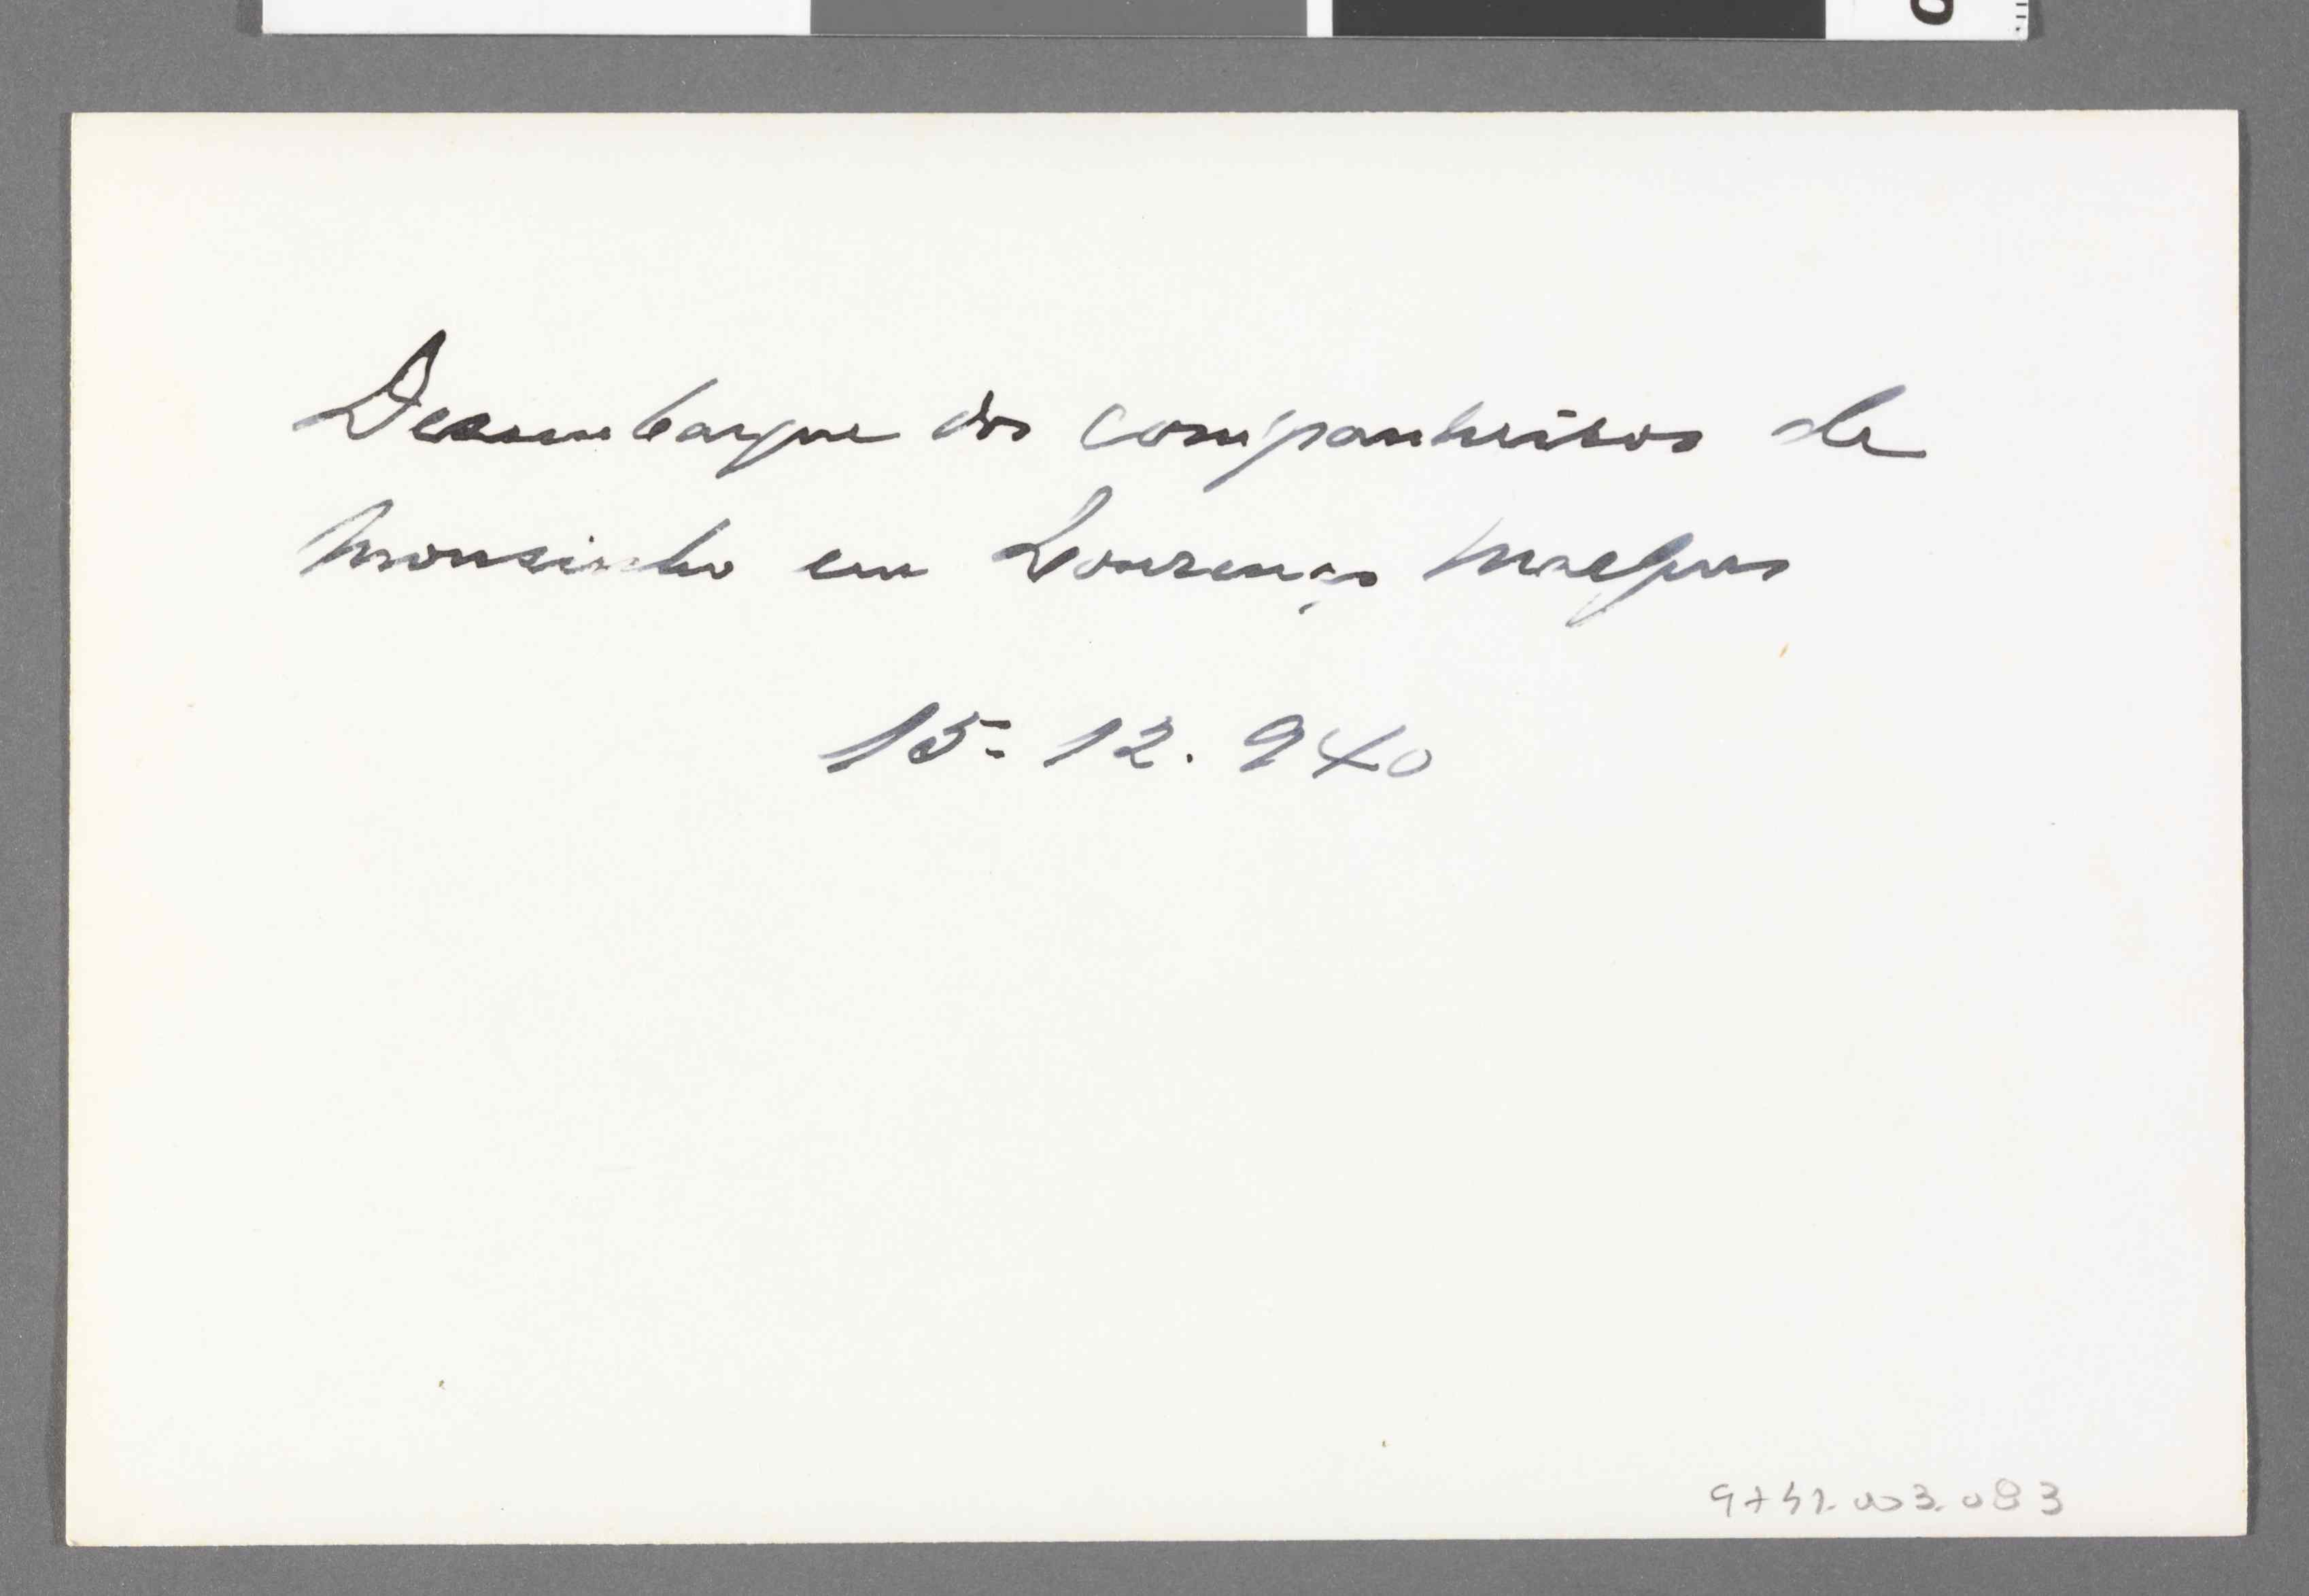 Desembarque dos companheiros de
Mousinho em Lourenço Marques
15-12.940
9731.003.083